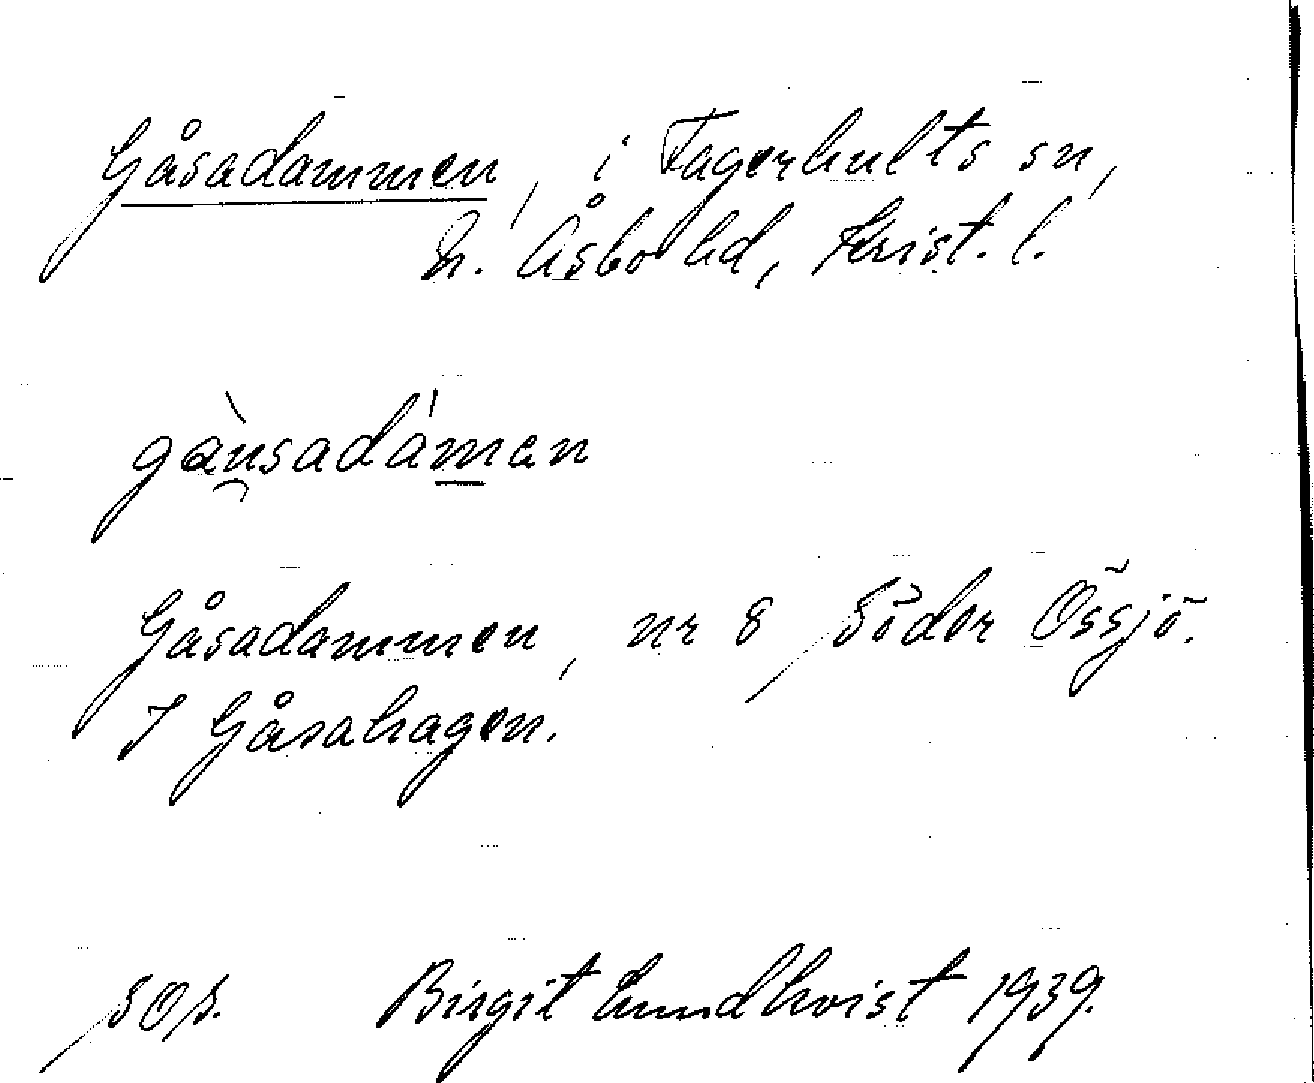 Gåsadammen, i Fagerhults sn,
N. Åsbo hd, Krist. l.
gàusadámen
Gåsadammen, nr 8 Söder Össjö.
I Gåsahagen.
Birgit Lundkvist 1939.